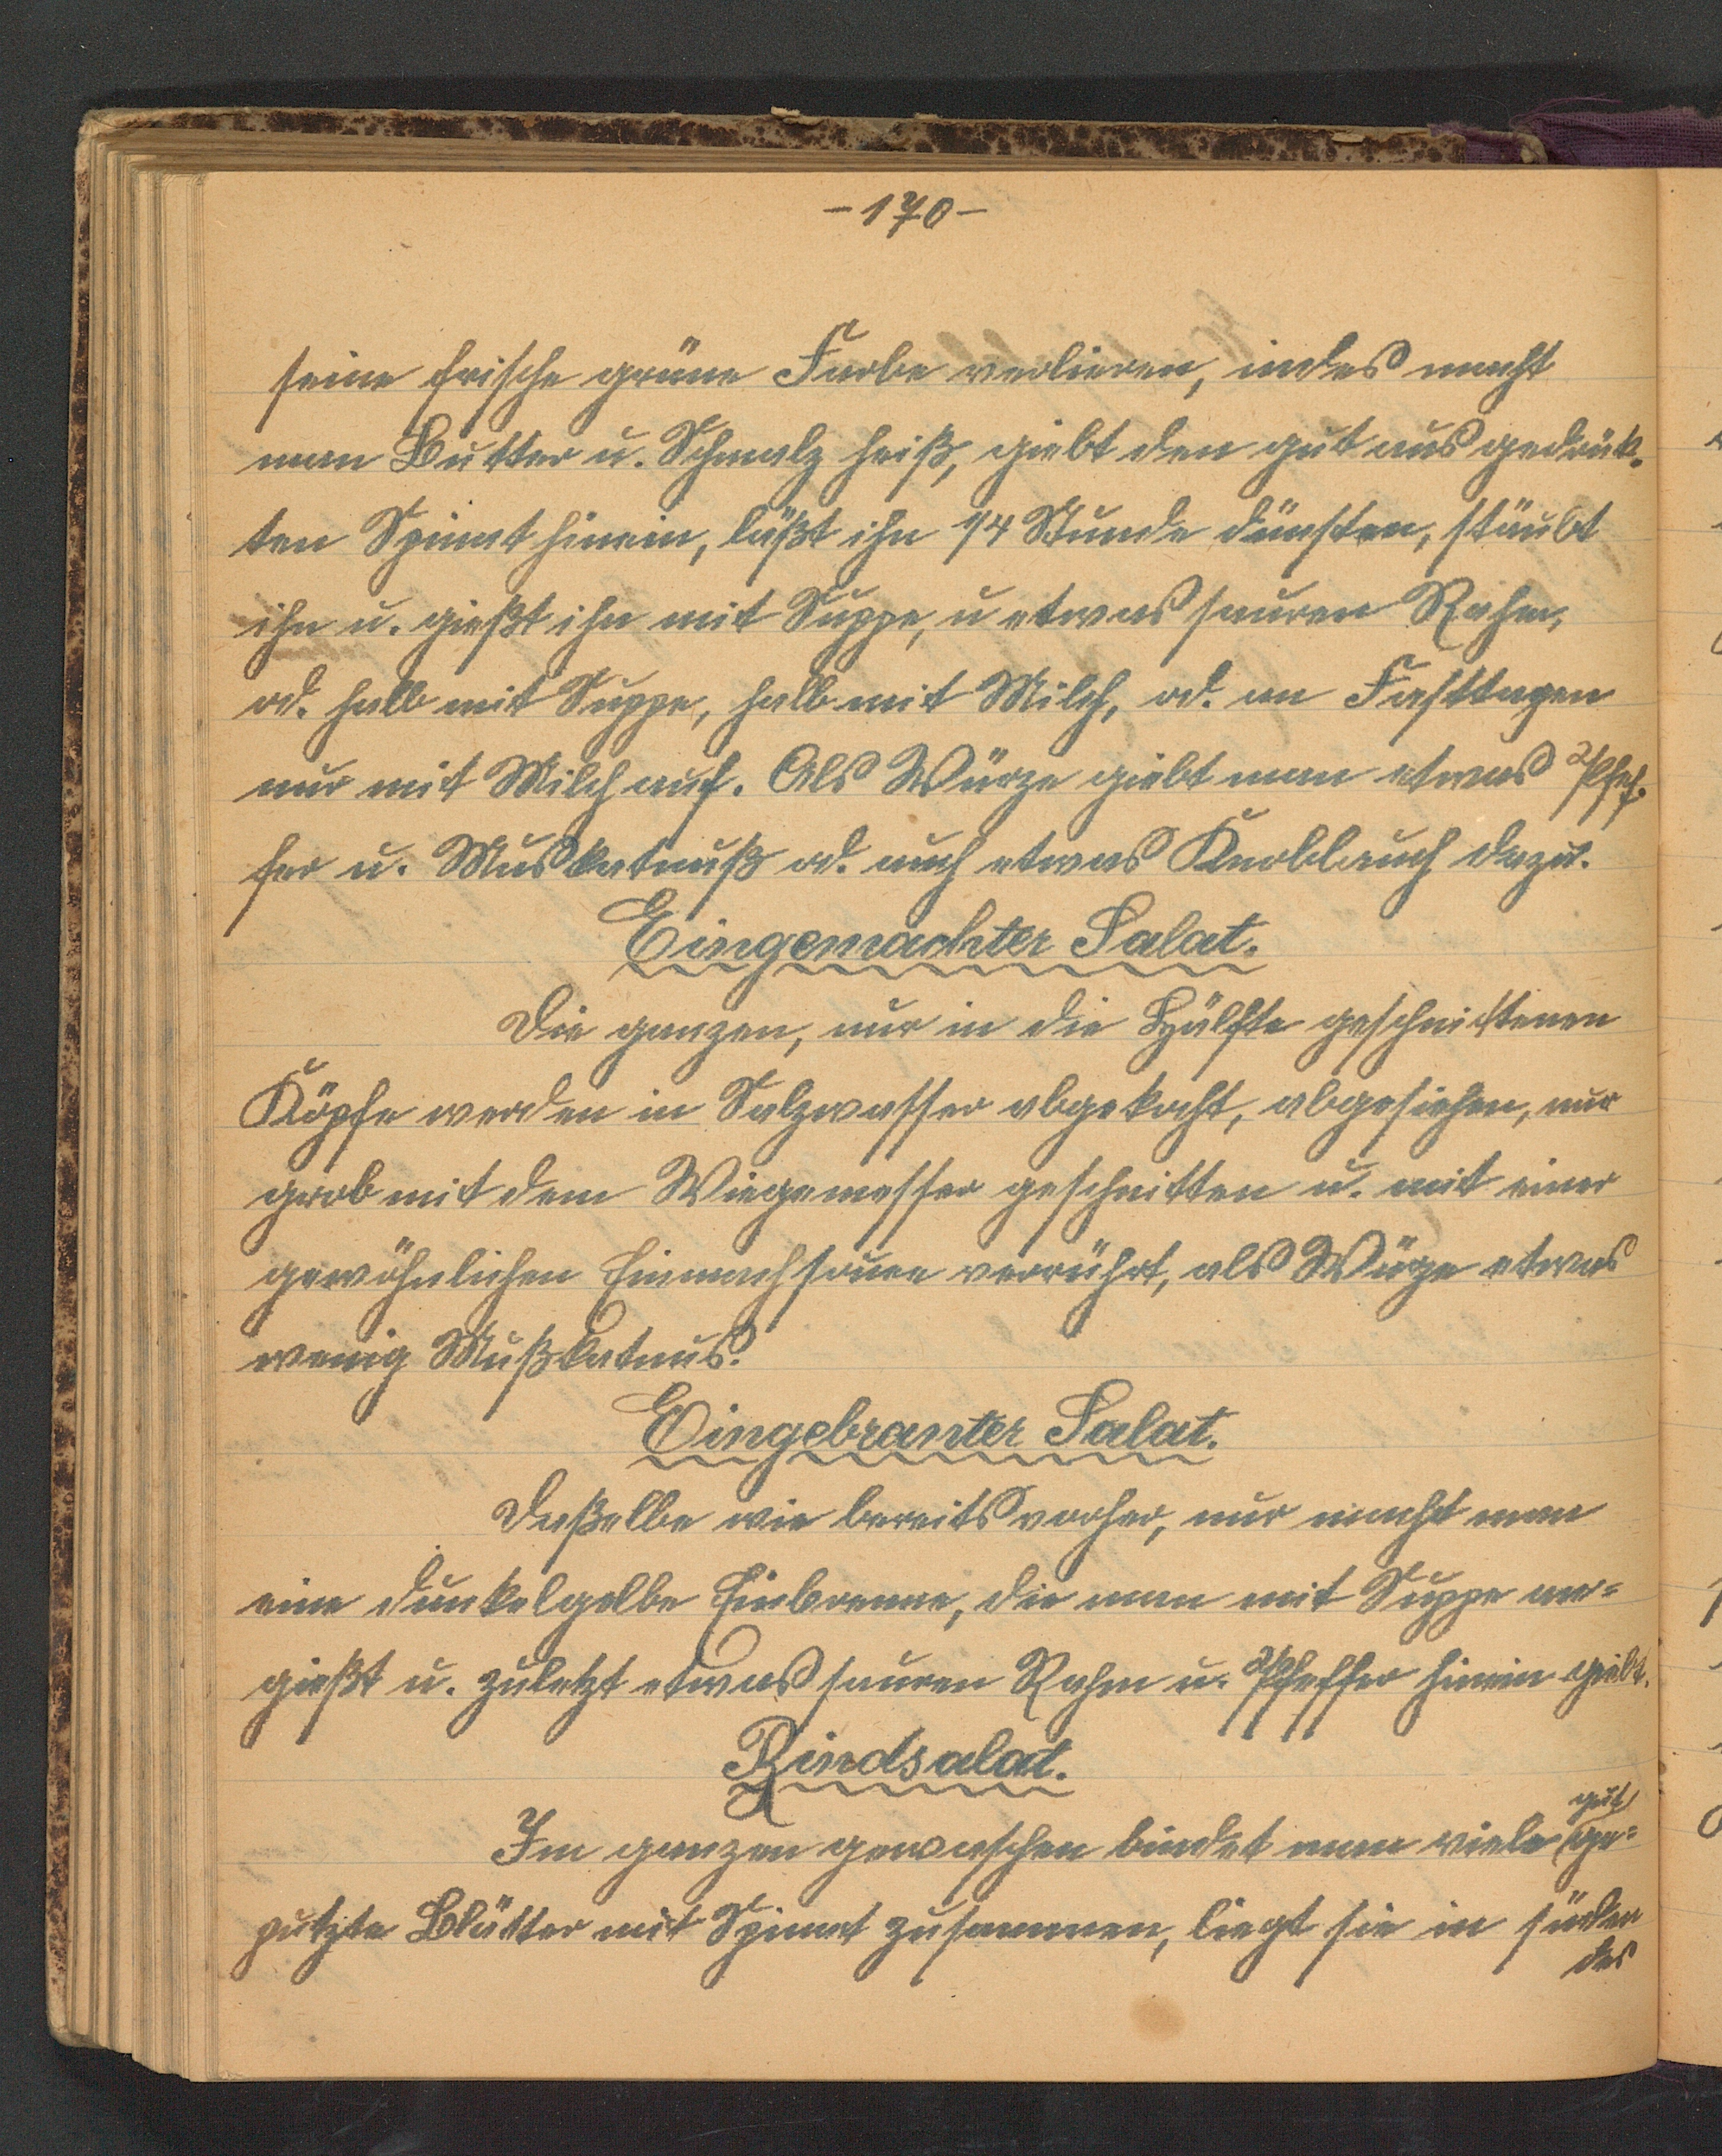 -170-
seine frische grüne Farbe verlieren, indes macht
man Butter u. Schmalz heiß, giebt den gut ausgedrük-
ten Spinat hinein, läßt ihn 1/4 Stunde dünsten, stäubt
ihn u. gießt ihn mit Suppe, u etwas sauren Rahm,
od. halb mit Suppe, halb mit Milch, od. an Fasttagen
nur mit Milch auf. Als Würze giebt man etwas Pfef-
fer u. Muskatnuß od. auch etwas Knoblauch dazu.
Eingemachter Salat.
Die ganzen, nur in die Hälfte geschnittenen
Köpfe werden in Salzwasser abgekocht, abgesiehen, nur
grob mit dem Wiegemesser geschnitten u. mit einer
gewöhnlichen Einmachsauce verrührt, als Würze etwas
wenig Mußkatnus.
Eingebranter Salat.
Daßelbe wie bereits vorher, nur macht man
eine dunkelgelbe Einbrenne, die man mit Suppe ver=
gießt u. zuletzt etwas sauren Rahm u. Pfeffer hinein giebt.
Bindsalat.
gut
Im ganzen gewaschen bindet man viele ge=
putzte Blätter mit Spinat zusammen, liegt sie in süden
des